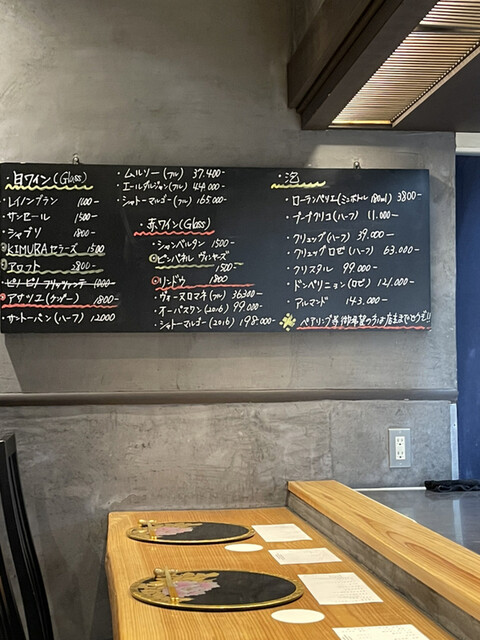 ・白ワイン(Glass)
・レイノンブラン 1100-
・サンセール 1500-
・シャブリ 1800-
KIMURAセラーズ 1500
・アロフト 3800-
1000-
アサツユ(ケンゾー) 1800-
・サントーバン(ハーフ) 12000
・ムルソー(フル) 37.400-
・エールダルジャン(フル) 44.000-
・シャトーマルゴー(フル) 165.000-
・赤ワイン(Glass)
・シャンベルタン 1500-
ピンパネル ヴィンヤーズ
1500-
リンドウ 1800
・ヴォーヌロマネ(フル) 36300-
・オーパスワン(2016) 99.000-
・シャトーマルゴー(2016) 198.000-
・泡
・ローランペリエ(ミニボトル 180ml) 3800-
・ブーブクリコ(ハーフ) 11.000-
・クリュッグ(ハーフ) 39.000-
・クリュッグロゼ(ハーフ) 63.000-
・クリスタル 99.000-
・ドンペリニョン(ロゼ) 121.000-
・アルマンド 143.000-
ペアリング等御希望の方は店主までどうぞ!!